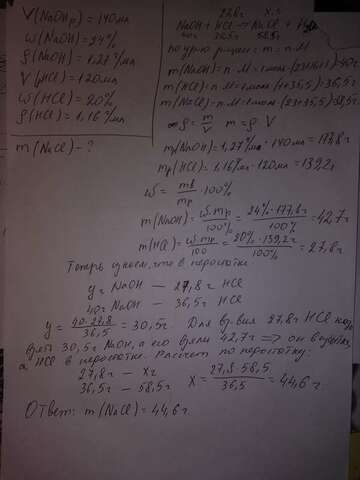 V(NaOHр) = 140мл
ω(NaOH) = 24%
ρ(NaOH) = 1,27 г/мл
V(HCl) = 120мл
ω(HCl) = 20%
ρ(HCl) = 1,16 г/мл
m(NaCl) - ?
27,8г xг
NaOH + HCl → NaCl + H2O
40г 36,5г 58,5г
m = n·M
m(NaOH) = n·M = 1моль·(23+16+1) = 40г
m(HCl) = n·M = 1моль·(1+35,5) = 36,5г
m(NaCl) = n·M = 1моль·(23+35,5) = 58,5г
ρ = m/V m = ρ·V
mр(NaOH) = 1,27г/мл · 140мл = 177,8г
mр(HCl) = 1,16г/мл · 120мл = 139,2г
ω = mв/mр · 100%
m(NaOH) = ω·mр/100% = 24%·177,8г/100% = 42,7г
m(HCl) = ω·mр/100 = 20%·139,2г/100% = 27,8г
Теперь узнаем, что в недостатке
yг NaOH — 27,8г HCl
40г NaOH — 36,5г HCl
y = 40·27,8/36,5 = 30,5г. Для вз-вия 27,8г HCl надо
взять 30,5г NaOH, а его взяли 42,7г => он в избытке,
а HCl в недостатке. Расчёт по недостатку:
27,8г — xг
36,5г — 58,5г
x = 27,8·58,5/36,5 = 44,6г
Ответ: m(NaCl) = 44,6г